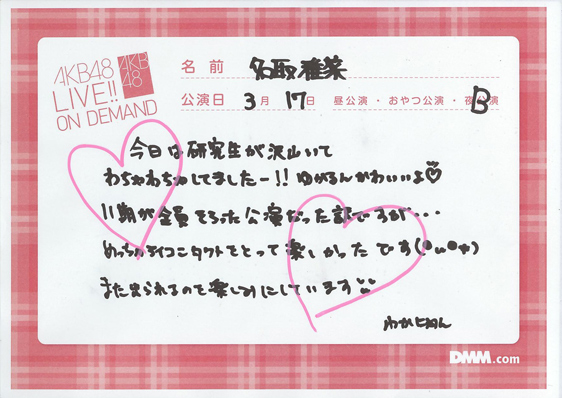 AKB48
LIVE!!
ON DEMAND
AKB
48
名前 名取稚菜
公演日 3月17日 昼公演・おやつ公演・夜公演
B
今日は研究生が沢山いて
わちゃわちゃしてましたー!! ゆがるんかわいいよ♡
11期が全員そろった公演だった訳ですが・・・
めっちゃアイコンタクトをとって楽しかったです(
また出られるのを楽しみにしています
わかにゃん
DMM.com